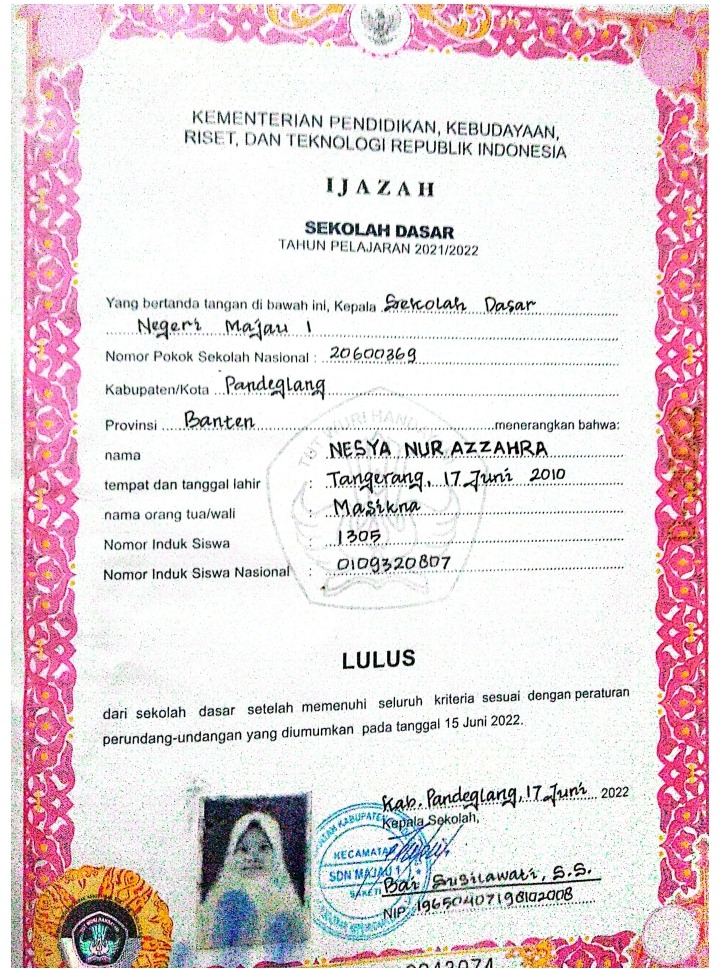 KEMENTERIAN PENDIDIKAN, KEBUDAYAAN,
RISET, DAN TEKNOLOGI REPUBLIK INDONESIA
IJAZAH
SEKOLAH DASAR
TAHUN PELAJARAN 2021/2022
Yang bertanda tangan di bawah ini, Kepala Sekolah Dasar
Negeri Majau 1
Nomor Pokok Sekolah Nasional : 20600369
Kabupaten/Kota Pandeglang
Provinsi Banten menerangkan bahwa:
TUT WURI HANDAYANI
nama : NESYA NUR AZZAHRA
tempat dan tanggal lahir : Tangerang, 17 Juni 2010
nama orang tua/wali : Masikna
Nomor Induk Siswa : 1305
Nomor Induk Siswa Nasional : 0109320807
LULUS
dari sekolah dasar setelah memenuhi seluruh kriteria sesuai dengan peraturan
perundang-undangan yang diumumkan pada tanggal 15 Juni 2022.
Kab. Pandeglang, 17 Juni 2022
Kepala Sekolah,
KABUPATEN
KECAMATAN
SDN MAJAU 1
SAKETI
Bai Susilawati, S.S.
NIP. 19650407198102008
TUT WURI HANDAYANI